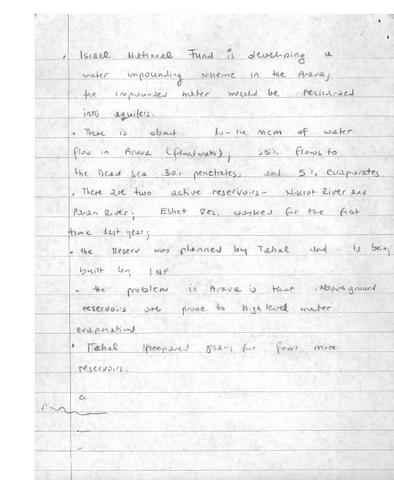 • Israel National Fund is developing a
water impounding scheme in the Arava;
the impounded water would be recharged
into aquifers.
• There is about 10-14 mcm of water
flow in Arava (floodwater); 65% flows to
the Dead Sea 30% penetrates, and 5% evaporates
• There are two active reservoirs - Nikrot River and
Paran River; Eshet Res. worked for the first
time last year;
• the Reserv was planned by Tahal and is being
built by INF
• the problem in Arava is that aboveground
reservoirs are prone to high level water
evaporation
• Tahal prepared plans for four more
reservoirs.